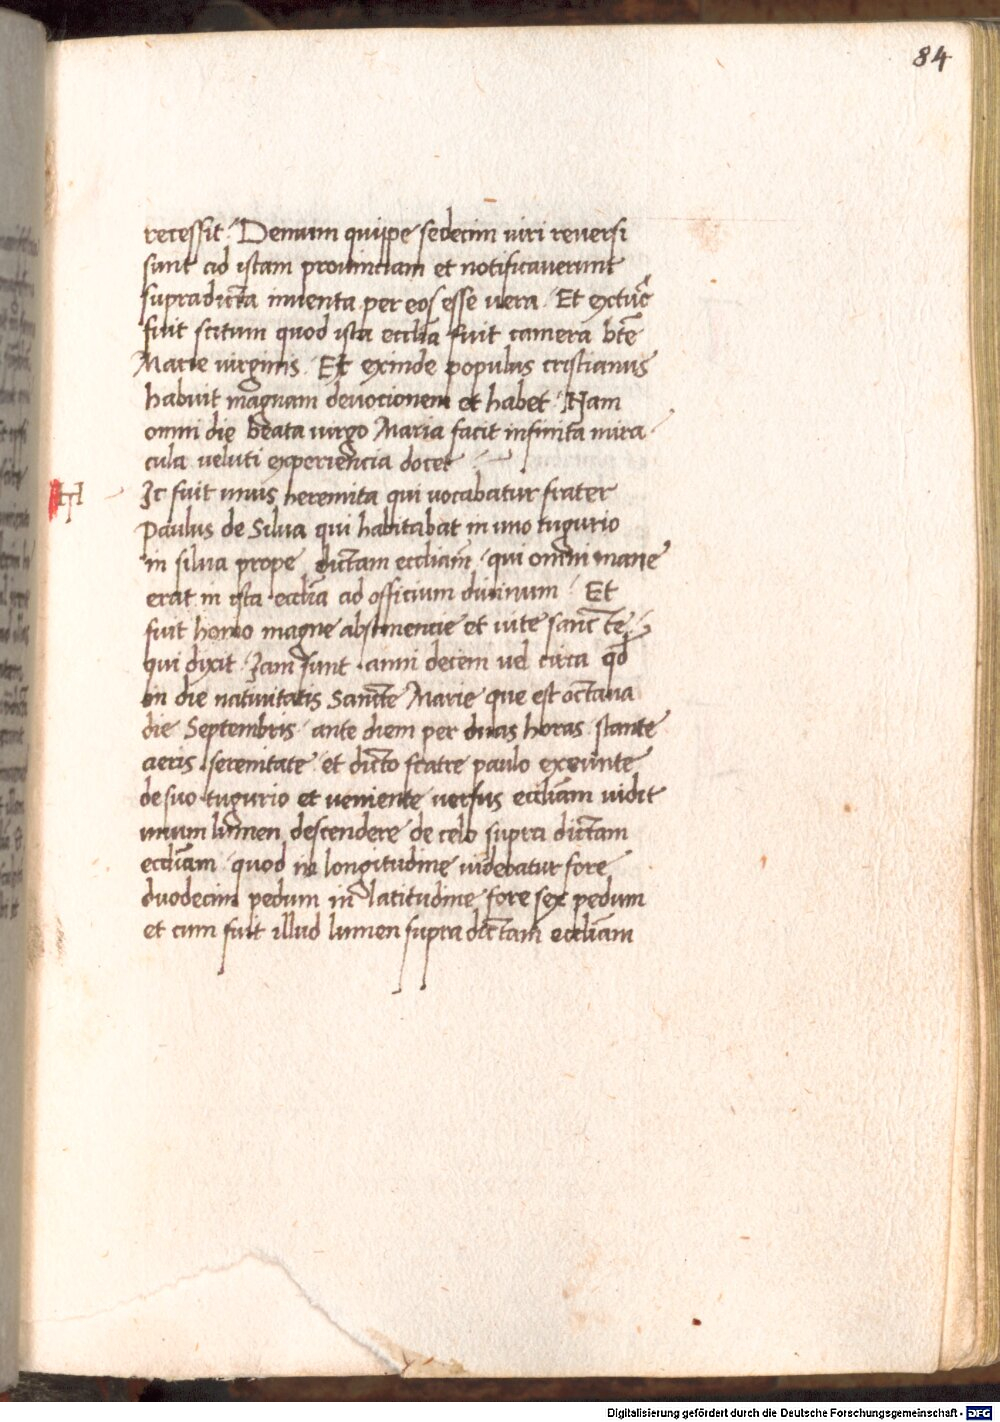 84
recessit. Demum quippe sedecim uiri reuersi
sunt ad istam prouinciam et notificauerunt
supradicta inuenta per eos esse uera. Et extūc
fuit scitum quod ista eccl̄ia fuit camera bt̄e
Marie uirginis. Et exinde populus cristianus
habuit magnam deuocionem et habet. Nam
omni die beata uirgo Maria facit infinita mira
cula veluti experiencia docet
H Ic fuit unus heremita qui uocabatur frater
Paulus de Silua qui habitabat in uno tugurio
in silua prope dictam eccl̄iam. qui omni mane
erat in ista eccl̄ia ad officium diuinum. Et
fuit homo magne abstinencie et uite sancte
qui dixit. Iam sunt anni decem uel circa qd̄
in die natiuitatis Sancte Marie que est octaua
die Septembris ante diem per duas horas stante
aeris serenitate et dicto fratre paulo exeunte
de suo tugurio et veniente versus eccl̄iam uidit
unum lumen descendere de celo supra dictam
eccl̄iam. quod in longitudine uidebatur fore
duodecim pedum in latitudine fore sex pedum
et cum fuit illud lumen supra dictam eccl̄iam
Digitalisierung gefördert durch die Deutsche Forschungsgemeinschaft - DFG